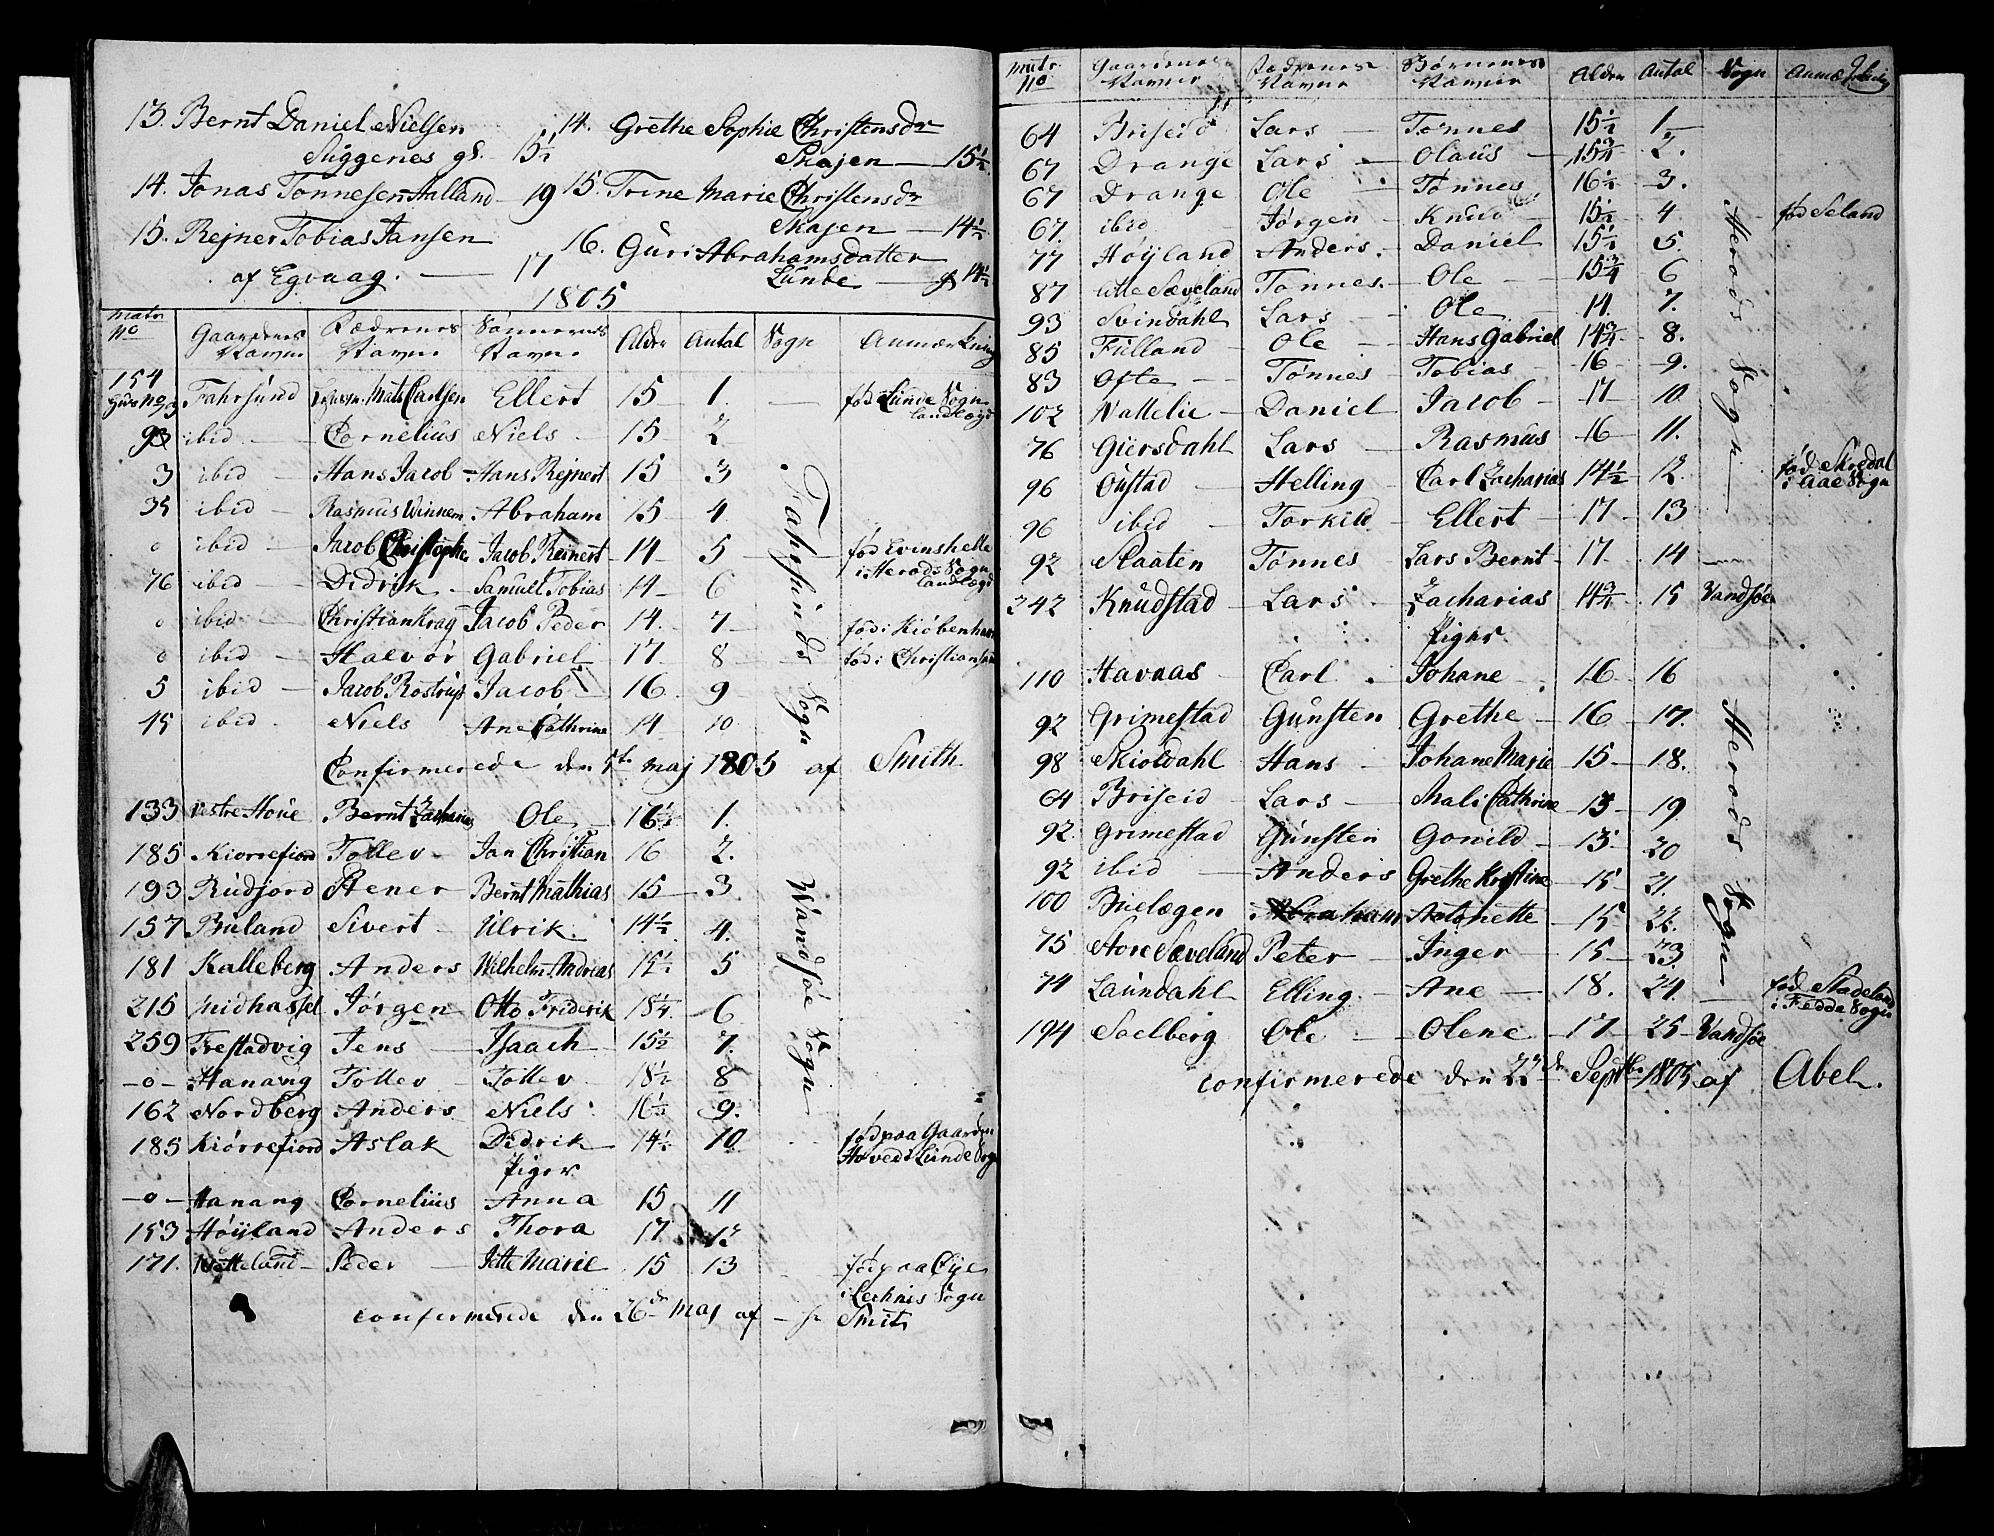 13. Bernt Daniel Nielsen
Siggenes gl. 15½
14. Jonas Tønnesen Aalland 19
15. Rejner Tobias Jansen
af Egvaag. — 17
14. Grethe Sophie Christensdr
Skajen — 15½
15. Trine Marie Christensdr
Skajen — 14½
16. Guri Abrahamsdatter
Lunde — 14½
1805
Matr No Gaardenes Navne Fædrenes Navne Sønnernes Navne Alder Antal Sogn Anmærkning
154 Fahrsund Mats Carlsen Ellert 15 1. fød i Lunde Sogn landlægd
93 ibid Cornelius Niels 15 2
3 ibid Hans Jacob Hans Rejnert 15 3
35 ibid Rasmus Winnem Abraham 15 4
0 ibid Jacob Christophe Jacob Reinert 14 5 fød Evinshelle i Herads Sogn landlægd
76 ibid Didrik Samuel Tobias 14 6
0 ibid Christian Krag Jacob Peder 14 7 fød i Kiøbenhavn
0 ibid Halvor Gabriel 17 8 fød i Christiansand
5 ibid Jacob Rostrup Jacob 16 9
45 ibid Niels Ane Cathrine 14 10
Fahrsunds Sogn
Confirmerede den 5te Maj 1805 af Smith
133 Vestre Houe Bernt Zacharias Ole 16½ 1.
185 Kiørrefiord Tollev Jan Christian 16 2.
193 Rudjord Stener Bernt Mathias 15 3
157 Buland Sivert Ulrik 14½ 4.
181 Kalleberg Anders Wilhelm Andreas 15½ 5
215 Midhassel Jørgen Otto Friderik 18¼ 6
259 Trestadvig Jens Isaach 15½ 7.
-0- Hanang Tollev Tollev 18½ 8
162 Nordberg Anders Niels 16½ 9.
185 Kiørrefiord Aslak Didrik 14½ 10 fød paa Gaarden Hoved i Lunde Sogn
Piger
-0- Hanang Cornelius Anna 15 11
153 Høyland Anders Thora 17 12
171. Wetteland Peder Jette Marie 15 13 fød paa Øye i Lechnis Sogn
Wandsøe Sogn
confirmerede den 26de Maj af — hr Smith
Matr No Gaardenes Navne Fædrenes Navne Børnenes Navne Alder Antal Sogn Anmærkning
64 Briseid Lars Tønnes 15½ 1.
67 Drange Lars Olaus 15¾ 2.
67 Drange Ole Tønnes 16½ 3.
67. ibid Jørgen Knud 15½ 4 fød Seland
77 Høyland Anders Daniel 15½ 5.
87 Litle Sæveland Tønnes Ole 15¾ 6
93 Svindahl Lars Ole 14 7.
85 Fulland Ole Hans Gabriel 14¾ 8.
83 Ofte Tønnes Tobias 16 9.
102 Wattelie Daniel Jacob 17 10
76 Giersdahl Lars Rasmus 16 11.
96 Øustad Helling Carl Zacharias 14½ 12. fød Skredal i Aae Sogn
96 ibid Torkild Ellert 17 13
92 Slaaten Tønnes Lars Bernt 17. 14
Herads Sogn
242 Knudstad Lars Zacharias 14¾ 15 Vandsøe
Piger
110 Havaas Carl Johane 16 16
92 Grimestad Gunsten Grethe 16 17.
98 Skioldahl Hans Johane Marie 15 18.
64 Briseid Lars Mali Cathrine 15 19
92. Grimestad Gunsten Gonild 15 20
92 ibid Anders Grethe Kristine 15 21.
100 Buelægen Abraham Antonette 15 22.
75 Store Sæveland Peter Inger 15 23.
74 Laundahl Elling Ane 18. 24. fød Stadeland i Fedde Sogn
Herads Sogn
194 Soelberg Ole Olene 17 25 Vandsøe
confirmerede den 22de Septbr 1805 af Abel.